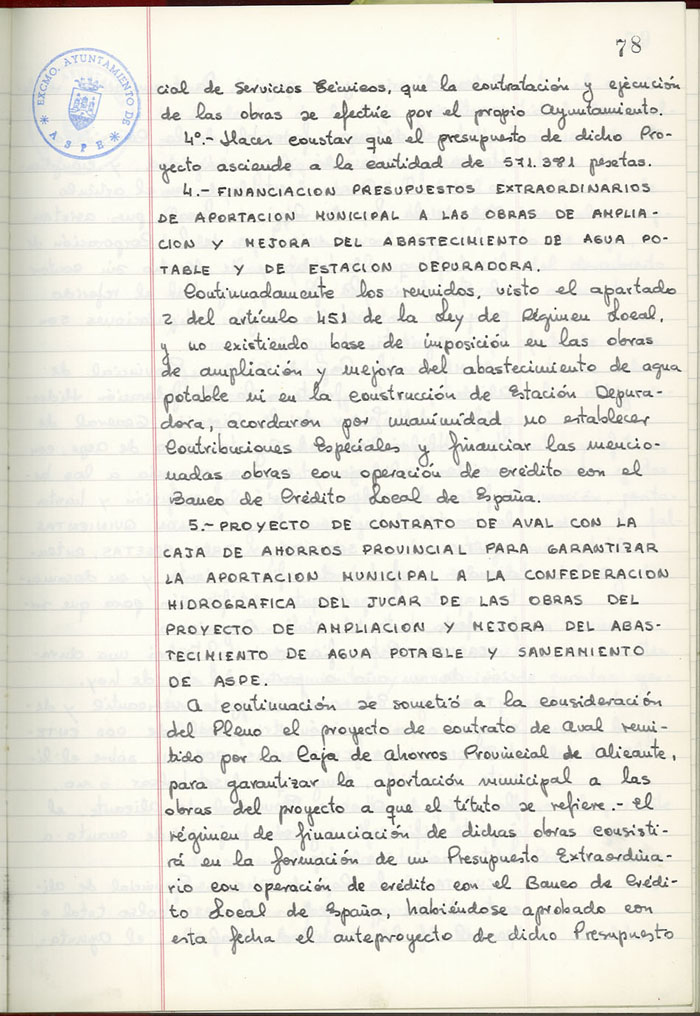 78
EXCMO. AYUNTAMIENTO DE
* ASPE *
cial de Servicios Técnicos, que la contratación y ejecución
de las obras se efectúe por el propio Ayuntamiento.
4º.- Hacer constar que el presupuesto de dicho Pro-
yecto asciende a la cantidad de 571.381 pesetas.
4.- FINANCIACION PRESUPUESTOS EXTRAORDINARIOS
DE APORTACION MUNICIPAL A LAS OBRAS DE AMPLIA-
CION Y MEJORA DEL ABASTECIMIENTO DE AGUA PO-
TABLE Y DE ESTACION DEPURADORA.
Continuadamente los reunidos, visto el apartado
2 del artículo 451 de la Ley de Régimen Local,
y no existiendo base de imposición en las obras
de ampliación y mejora del abastecimiento de agua
potable ni en la construcción de Estación Depura-
dora, acordaron por unanimidad no establecer
Contribuciones Especiales y financiar las mencio-
nadas obras con operación de crédito con el
Banco de Crédito Local de España.
5.- PROYECTO DE CONTRATO DE AVAL CON LA
CAJA DE AHORROS PROVINCIAL PARA GARANTIZAR
LA APORTACION MUNICIPAL A LA CONFEDERACION
HIDROGRAFICA DEL JUCAR DE LAS OBRAS DEL
PROYECTO DE AMPLIACION Y MEJORA DEL ABAS-
TECIMIENTO DE AGUA POTABLE Y SANEAMIENTO
DE ASPE.
A continuación se sometió a la consideración
del Pleno el proyecto de contrato de Aval remi-
tido por la Caja de Ahorros Provincial de Alicante,
para garantizar la aportación municipal a las
obras del proyecto a que el título se refiere.- El
régimen de financiación de dichas obras consisti-
rá en la formación de un Presupuesto Extraordina-
rio con operación de crédito con el Banco de Crédi-
to Local de España, habiéndose aprobado con
esta fecha el anteproyecto de dicho Presupuesto